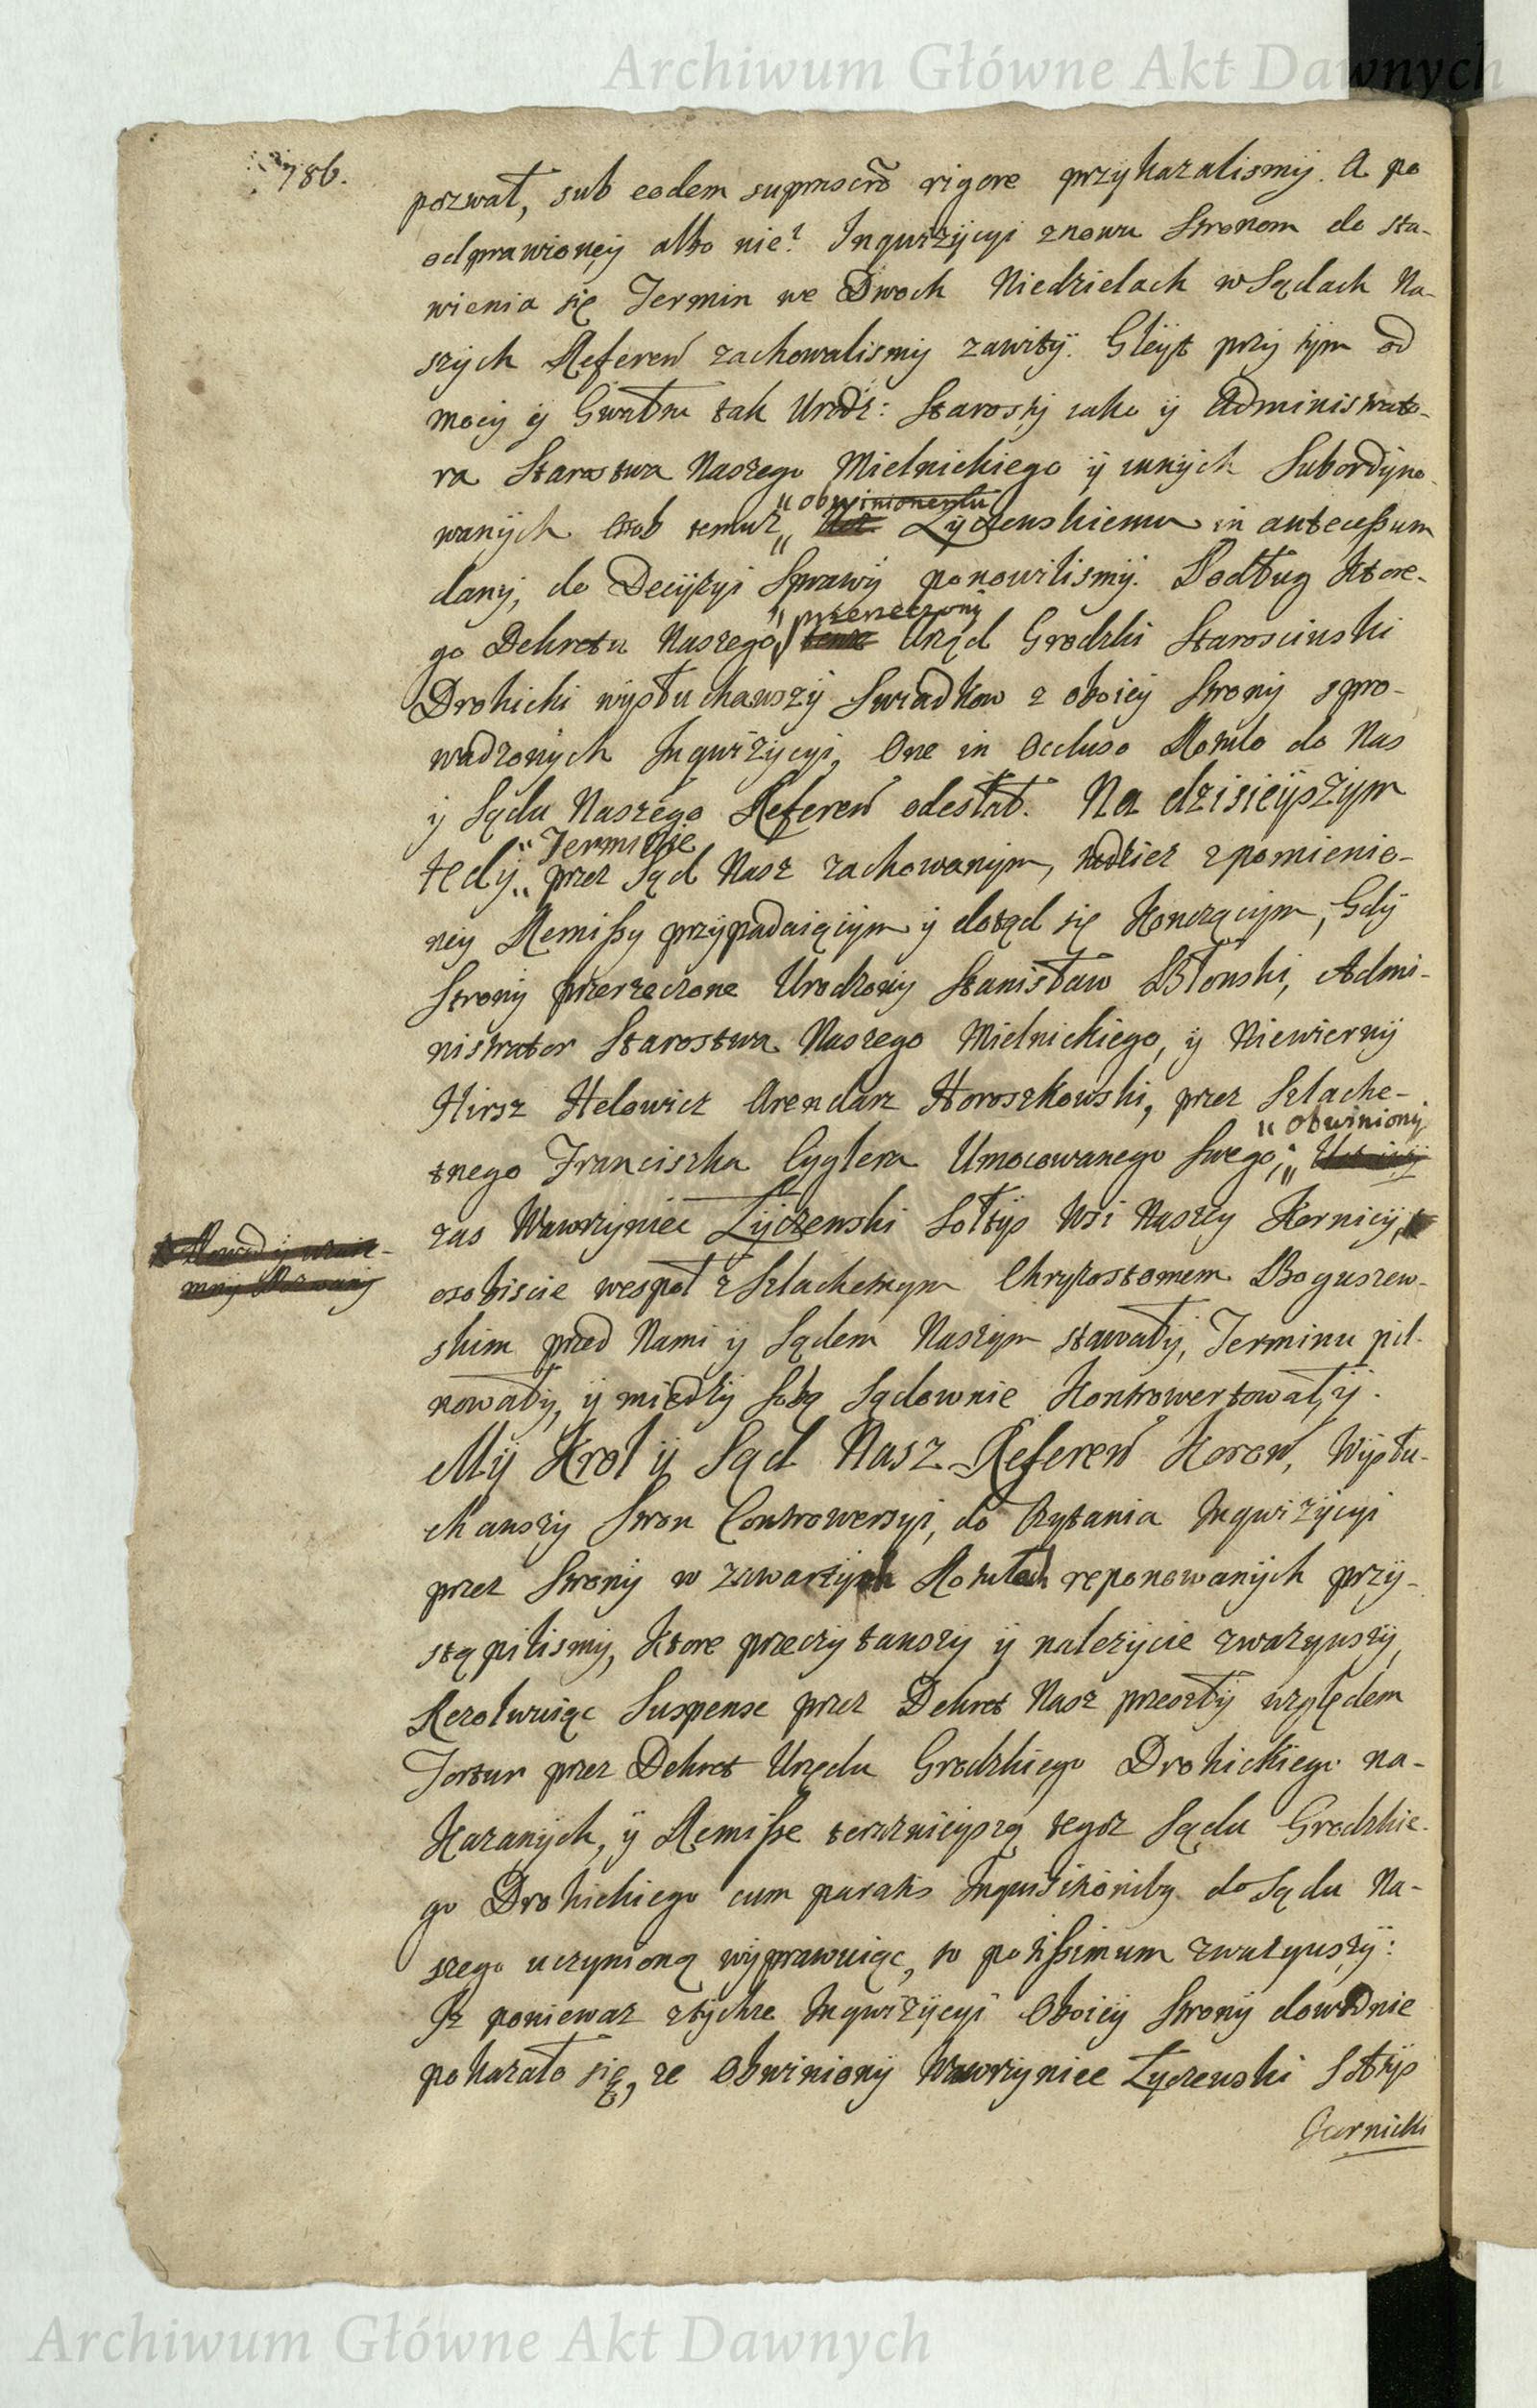 Archiwum Główne Akt Dawnych
786.
pozwał, sub eodem suprascrõ rigore przykazalismy. A po
odprawioney albo nie? Inqwizycyi znowu Stronom do sta-
wienia się Termin we Dwoch Niedzielach w Sądach Na-
szych Referen̄ zachowalismy zawity. Gleyt przy tym od
mocy y Gwałtu tak Urodz: Starosty iako y Administrato-
ra Starostwa Naszego Mielnickiego y innych Subordyno-
wanych Osob temuż „ obwinionemu
Zyczewskiemu in antecessum
dany, do Decyzyi Sprawy ponowilismy. Podług Ktore-
go Dekretu Naszego „ przerzeczony
Urząd Grodzki Starościnski
Drohicki wysłuchawszy Swiadkow z oboiey Strony spro-
wadzonych Inqwizycyi, One in Occluso Rotulo do Nas
y Sądu Naszego Referen̄ odesłał. Na dzisieyszym
tedy „ Terminie
przez Sąd Nasz zachowanym, tudziez z pomienio-
ney Remissy przypadaiącym y dotąd się Konczącym, Gdy
Strony przerzeczone Urodzony Stanisław Błonski, Admi-
nistrator Starostwa Naszego Mielnickiego, y Niewierny
Hirsz Helowicz Arendarz Horoszkowski, przez Szlache-
tnego Franciszka Cyglera Umocowanego Swego; „ Obwiniony
zas Wawrzyniec Zyczewski Sołtys Wsi Naszey Kornicy,
osobiscie wespoł z Szlachetnym Chryzostomem Boguszew-
skim przed Nami y Sądem Naszym stawały, Terminu pil-
nowały, y między sobą Sądownie Kontrowertowały.
My Krol y Sąd Nasz Referen̄ Koron̄, Wysłu-
chawszy Stron Controwersyi, do Czytania Inqwizycyi
przez Strony w zawartych Rotułach reponowanych przy-
stąpilismy, Ktore przeczytawszy y należycie zwazywszy,
Rezolwuiąc Suspense przez Dekret Nasz przeszły względem
Tortur przez Dekret Urzędu Grodzkiego Drohickiego na-
Kazanych, y Remisse teraznieyszą tegoz Sądu Grodzkie-
go Drohickiego cum paratis Inquisitioniby do Sądu Na-
szego uczynioną wyprawuiąc, to potissimum zwazywszy:
Iz poniewaz z tychze Inqwizycyi Oboiey Strony dowodnie
pokazało się, ze Obwiniony Wawrzyniec Zyczewski Sołtys
Kornicki
Archiwum Główne Akt Dawnych